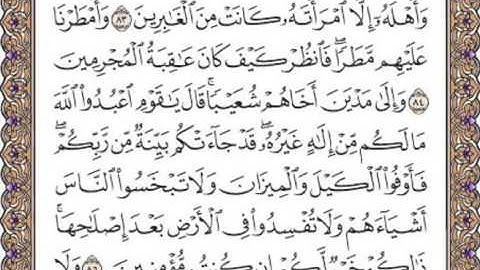 وَأَهْلَهُۥٓ إِلَّا ٱمْرَأَتَهُۥ كَانَتْ مِنَ ٱلْغَٰبِرِينَ ٨٣ وَأَمْطَرْنَا
عَلَيْهِم مَّطَرًا ۖ فَٱنظُرْ كَيْفَ كَانَ عَٰقِبَةُ ٱلْمُجْرِمِينَ
٨٤ وَإِلَىٰ مَدْيَنَ أَخَاهُمْ شُعَيْبًا ۗ قَالَ يَٰقَوْمِ ٱعْبُدُوا۟ ٱللَّهَ
مَا لَكُم مِّنْ إِلَٰهٍ غَيْرُهُۥ ۖ قَدْ جَآءَتْكُم بَيِّنَةٌ مِّن رَّبِّكُمْ ۖ
فَأَوْفُوا۟ ٱلْكَيْلَ وَٱلْمِيزَانَ وَلَا تَبْخَسُوا۟ ٱلنَّاسَ
أَشْيَآءَهُمْ وَلَا تُفْسِدُوا۟ فِى ٱلْأَرْضِ بَعْدَ إِصْلَٰحِهَا ۚ
ذَٰلِكُمْ خَيْرٌ لَّكُمْ إِن كُنتُم مُّؤْمِنِينَ ٨٥ وَلَا